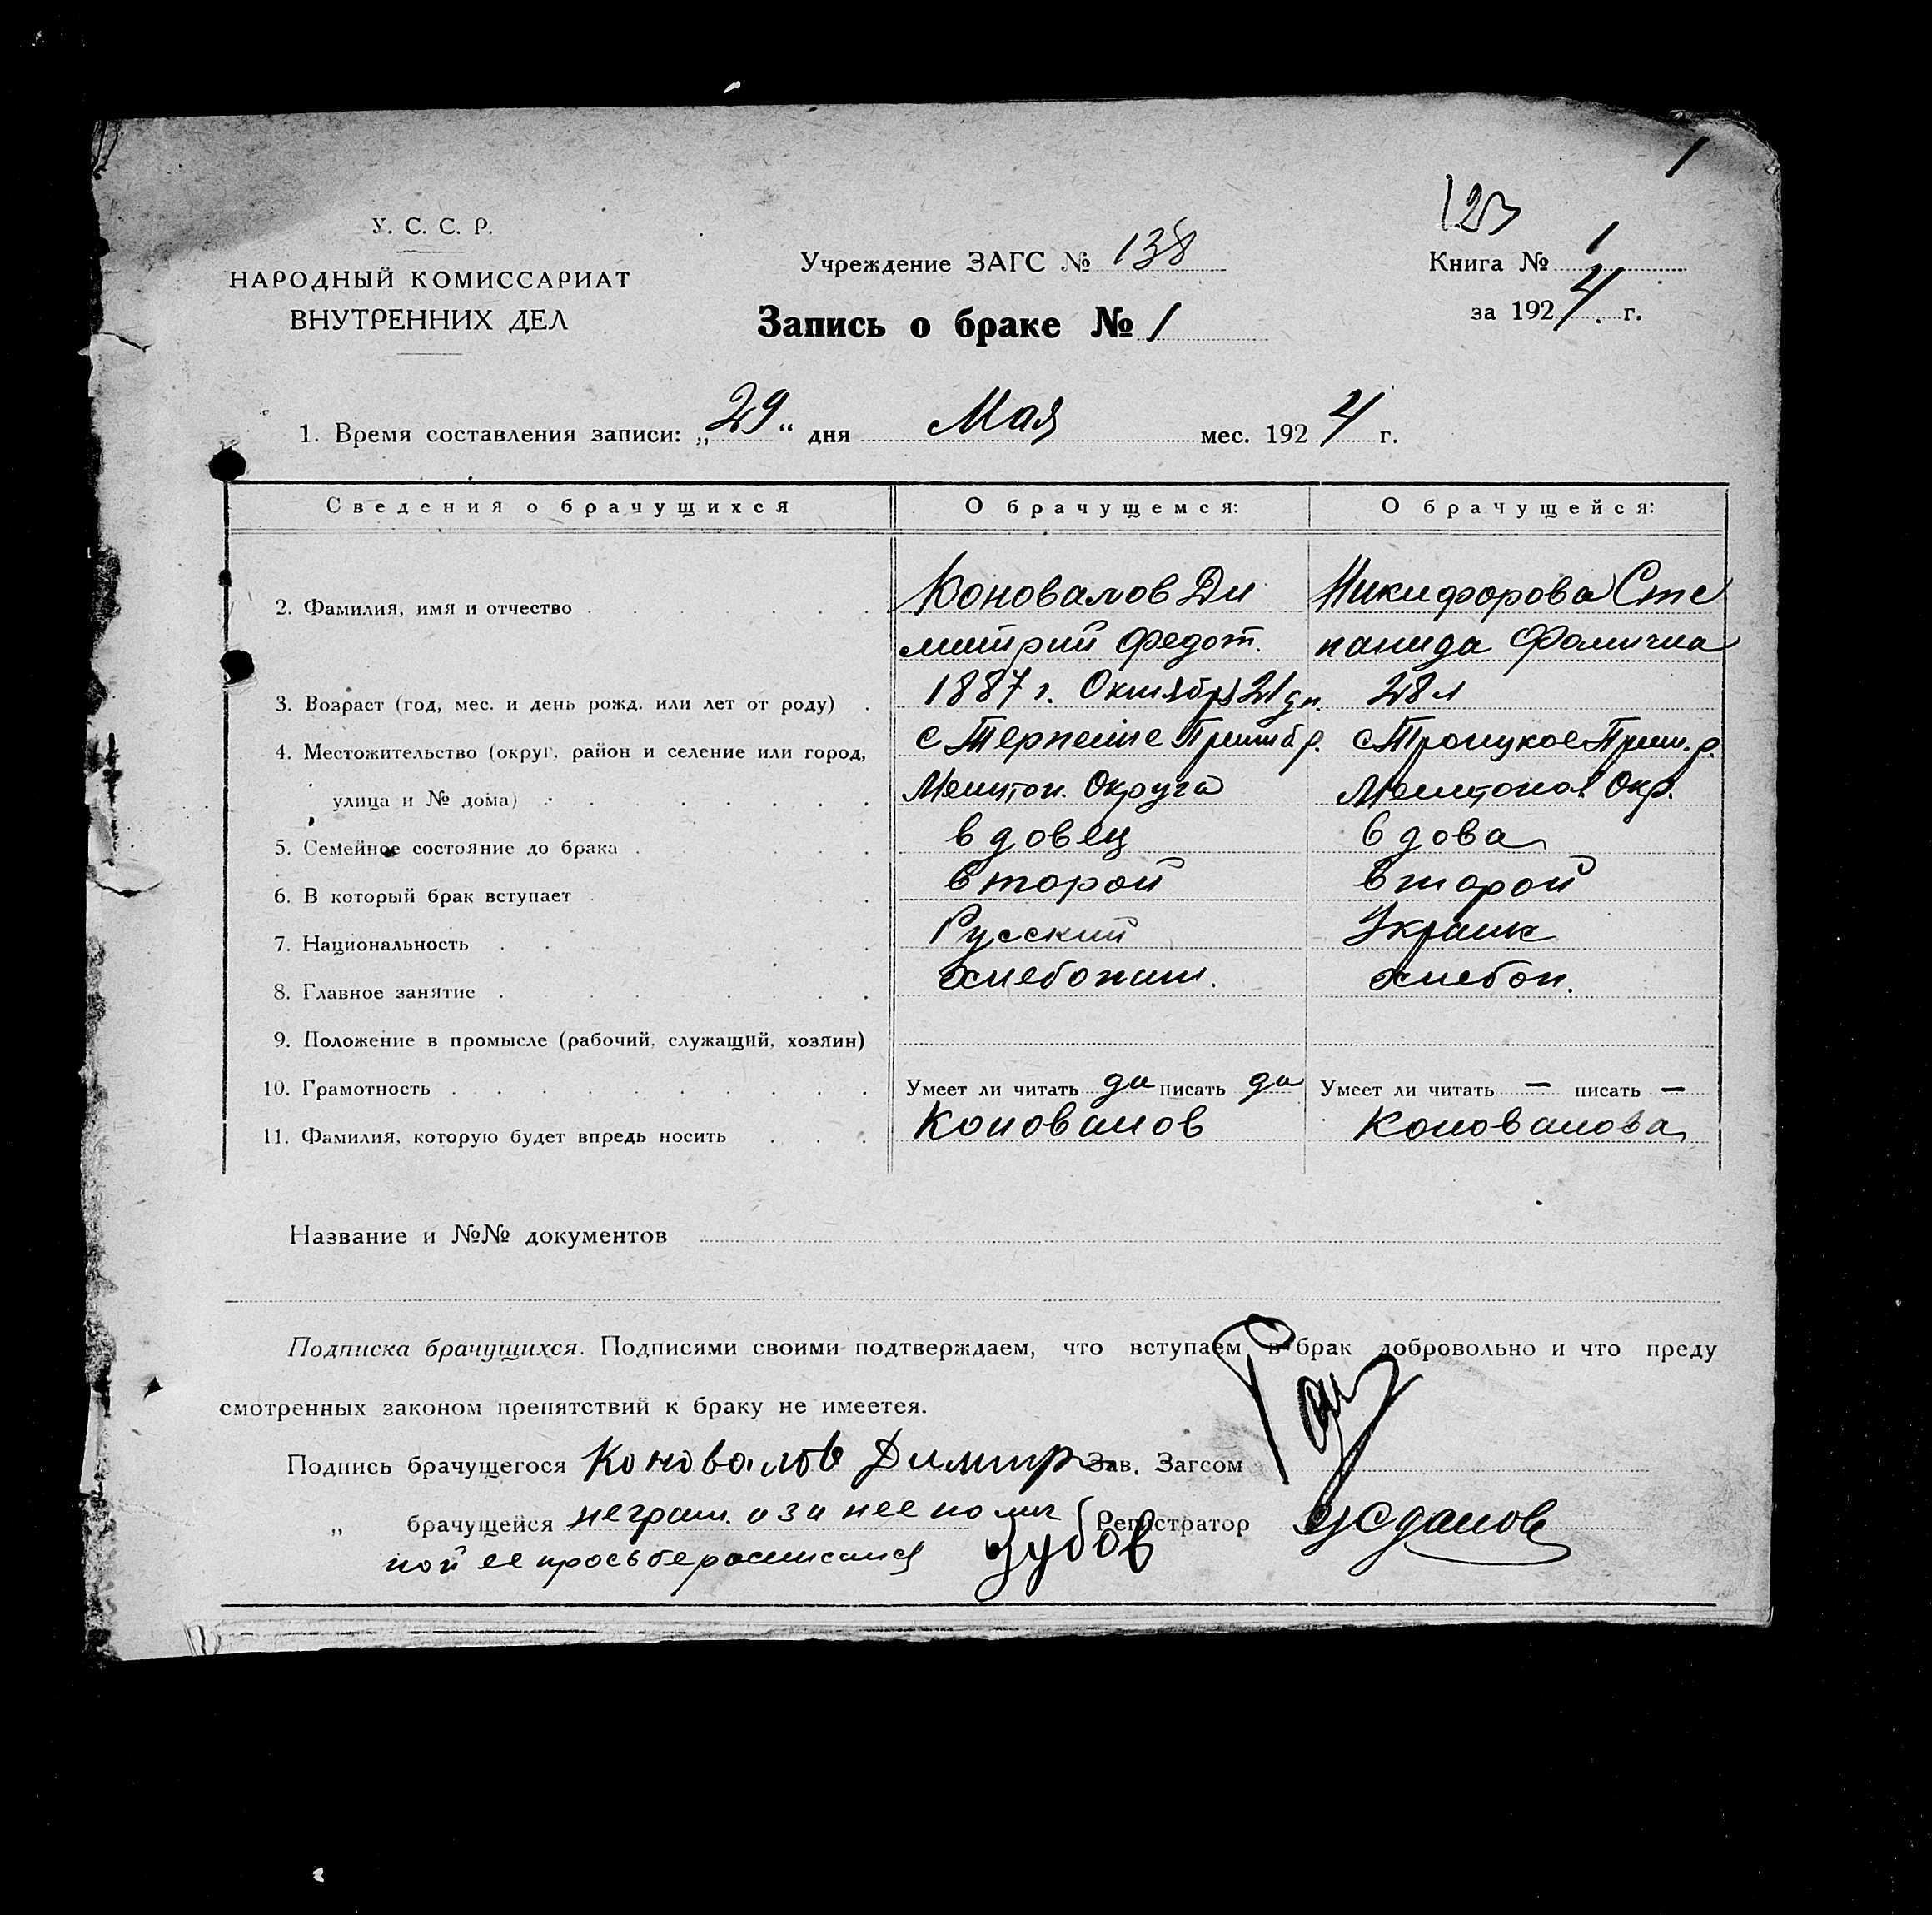 1
У. С. С. Р.
123
НАРОДНЫЙ КОМИССАРИАТ
ВНУТРЕННИХ ДЕЛ
Учреждение ЗАГС № 138
Книга № 1
за 1924 г.
Запись о браке № 1
1. Время составления записи: „29“ дня Мая мес. 1924 г.
Сведения о брачущихся О брачущемся: О брачущейся:
2. Фамилия, имя и отчество Коновалов Ди Никифорова Сте
митрий Федот. панида Фомична
3. Возраст (год, мес. и день рожд. или лет от роду) 1887 г. Октября 21 дн. 28 л
4. Местожительство (округ, район и селение или город, с Терпение Пришиб р. с Троицкое Приш. р.
улица и № дома) Мелитоп. Округа Мелитопол Окр.
5. Семейное состояние до брака вдовец вдова
6. В который брак вступает второй второй
7. Национальность Русский Украинк
8. Главное занятие хлебопаш. хлебоп.
9. Положение в промысле (рабочий, служащий, хозяин)
10. Грамотность Умеет ли читать да писать да Умеет ли читать — писать —
11. Фамилия, которую будет впредь носить Коновалов Коновалова
Название и №№ документов
Подписка брачущихся. Подписями своими подтверждаем, что вступаем в брак добровольно и что преду
смотренных законом препятствий к браку не имеется.
Подпись брачущегося Коновалов Димитр Зав. Загсом
„ брачущейся неграм. а за нее по лич Регистратор
ной ее просьбе расписался Зубов